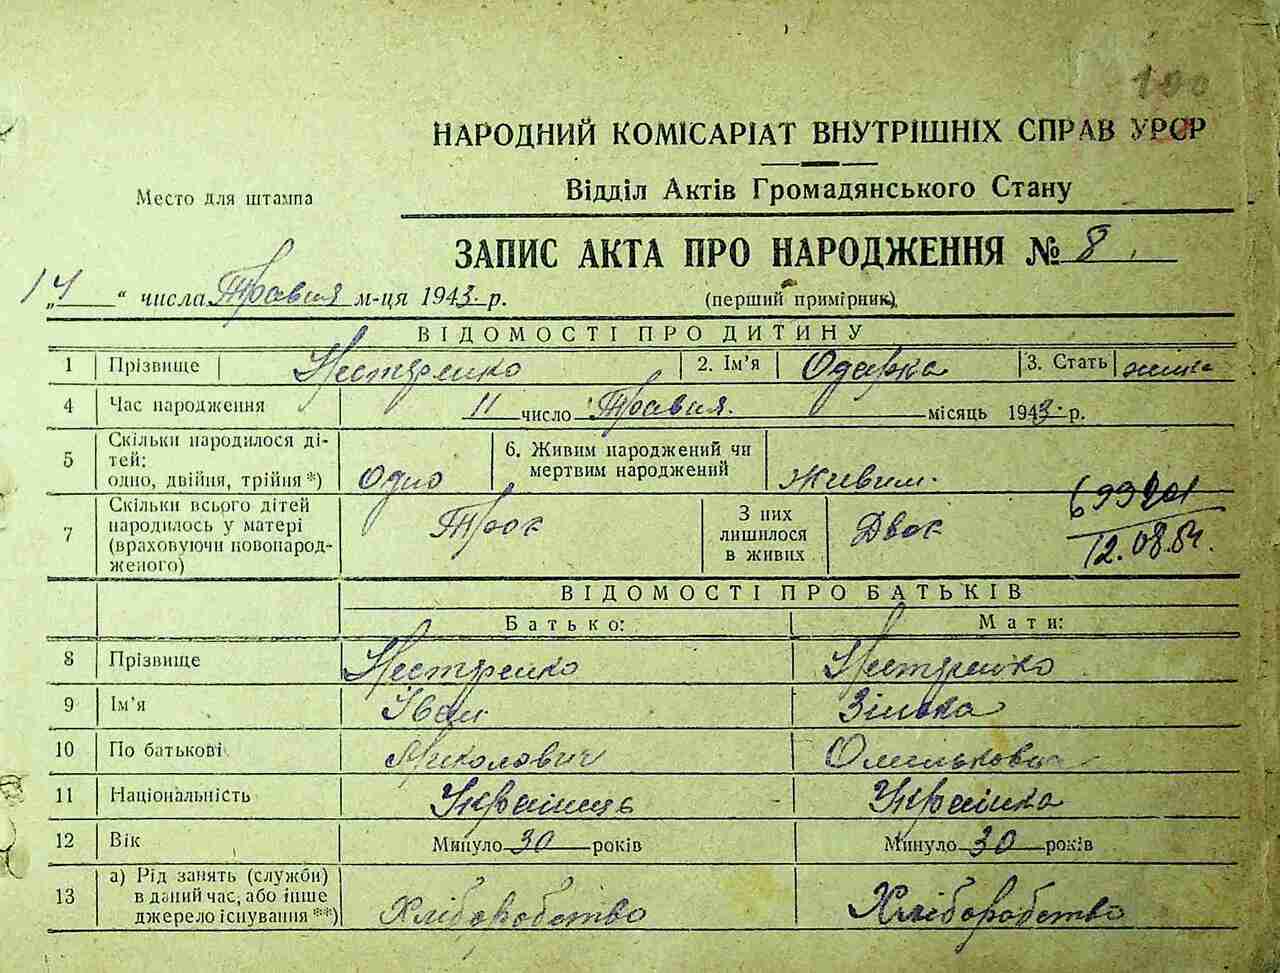 100
НАРОДНИЙ КОМІСАРІАТ ВНУТРІШНІХ СПРАВ УРСР
Відділ Актів Громадянського Стану
Место для штампа
ЗАПИС АКТА ПРО НАРОДЖЕННЯ № 8.
„14“ числа Травня м-ця 1943 р.
(перший примірник)
ВІДОМОСТІ ПРО ДИТИНУ
1 Прізвище Нестеренко 2. Ім'я Одарка 3. Стать жінка
4 Час народження 11 число Травня. місяць 1943 р.
5 Скільки народилося ді-
тей:
одно, двійня, трійня *) Одно
6. Живим народжений чи
мертвим народжений Живим.
7 Скільки всього дітей
народилось у матері
(враховуючи новонарод-
женого) Троє
З них
лишилося
в живих Двоє
12.08.84.
ВІДОМОСТІ ПРО БАТЬКІВ
Батько: Мати:
8 Прізвище Нестеренко Нестеренко
9 Ім'я Іван Зінька
10 По батькові Миколович
11 Національність Українець Українка
12 Вік Минуло 30 років Минуло 30 років
13 а) Рід занять (служби)
в даний час, або інше
джерело існування **) Хліборобство Хліборобство